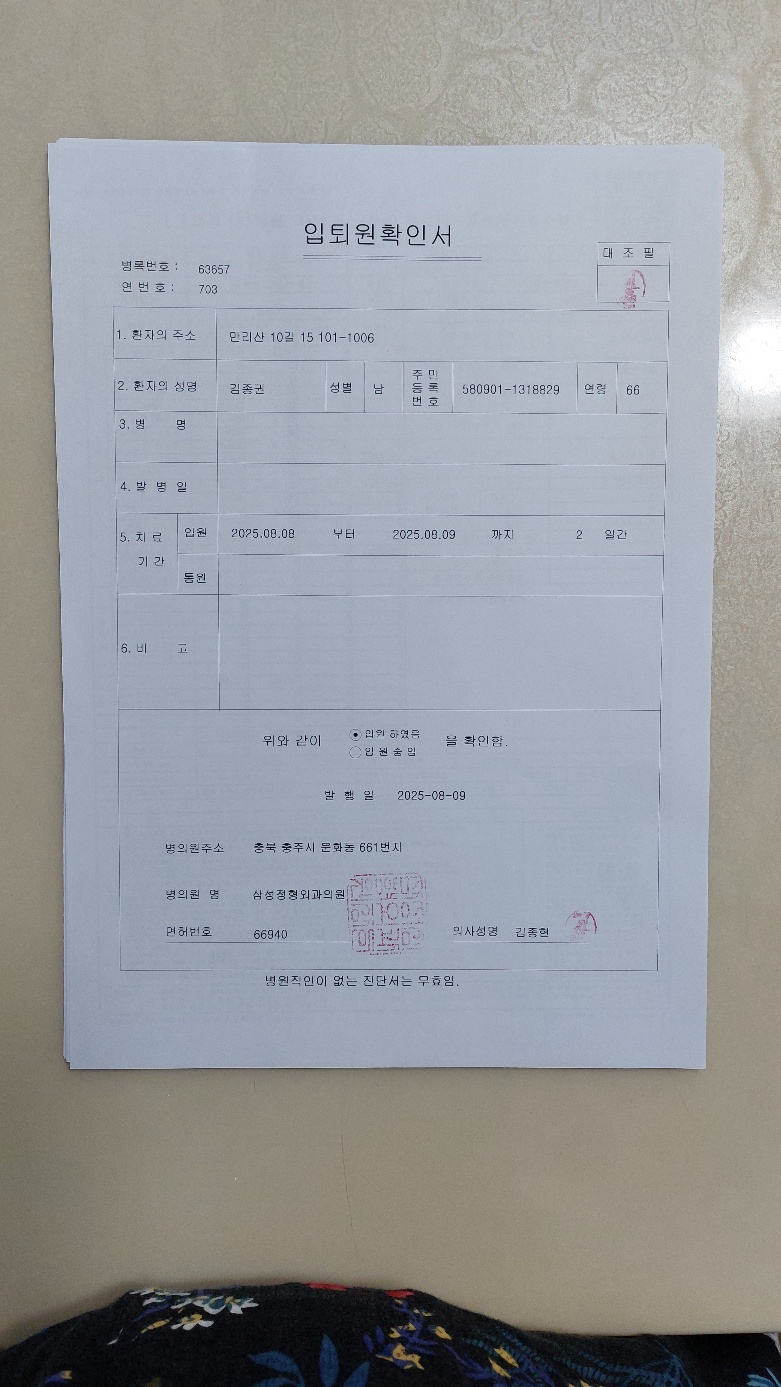 입퇴원확인서
대 조 필
병록번호 : 63657
연 번 호 : 703
1. 환자의 주소 만리산 10길 15 101-1006
2. 환자의 성명 김종권 성별 남 주 민 등 록 번 호 580901-1318829 연령 66
3. 병 명
4. 발 병 일
5. 치 료 기 간 입원 2025.08.08 부터 2025.08.09 까지 2 일간
통원
6. 비 고
위와 같이 입원 하였음 을 확인함.
입 원 중 임
발 행 일 2025-08-09
병의원주소 충북 충주시 문화동 661번지
병의원 명 삼성정형외과의원
면허번호 66940 의사성명 김종현
병원직인이 없는 진단서는 무효임.